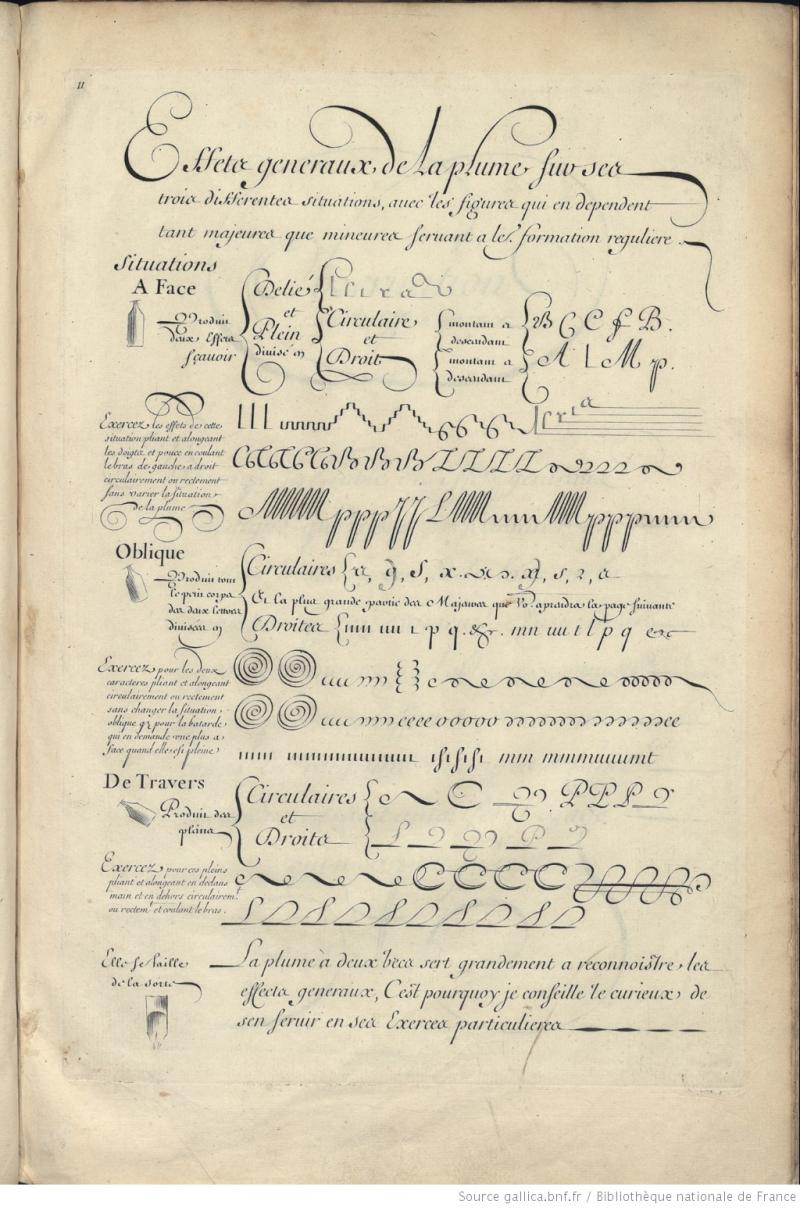 11
Effets generaux de la plume sur ses
trois differentes situations, avec les figures qui en dependent
tant majeures que mineures servant a les formation reguliere.
Situations
A Face
Produit
deux Effets
sçavoir
Delié
et
Plein
divisé en
Circulaire
et
Droit
montant a
descendant
montant a
descendant
B C C f B.
A l M p.
Exercez les effets de cette
situation pliant et alongeant
les doigts et pouce en coulant
le bras de gauche a droit
circulairement ou rectement
sans varier la situation
de la plume
Oblique
Produit tout
le petit corps
des deux lettres
divisées en
Circulaires
Et la plus grande partie des Majeures que vo.s aprandra la page suivante
Droites
mn uu t l p q etc
Exercez pour les deux
caracteres pliant et alongeant
circulairement ou rectement
sans changer la situation
oblique q; pour la batarde
qui en demande une plus a
face quand elle est pleine
De Travers
Produit des
plains
Circulaires
et
Droits
Exercez pour ces pleins
pliant et alongeant en dedans
main et en dehors circulairem.t
ou rectem.t et coulant le bras.
Elle se taille
de la sorte
La plume à deux becs sert grandement a reconnoistre les
effects generaux, C'est pourquoy je conseille le curieux de
s'en servir en ses Exerces particulieres
Source gallica.bnf.fr / Bibliothèque nationale de France